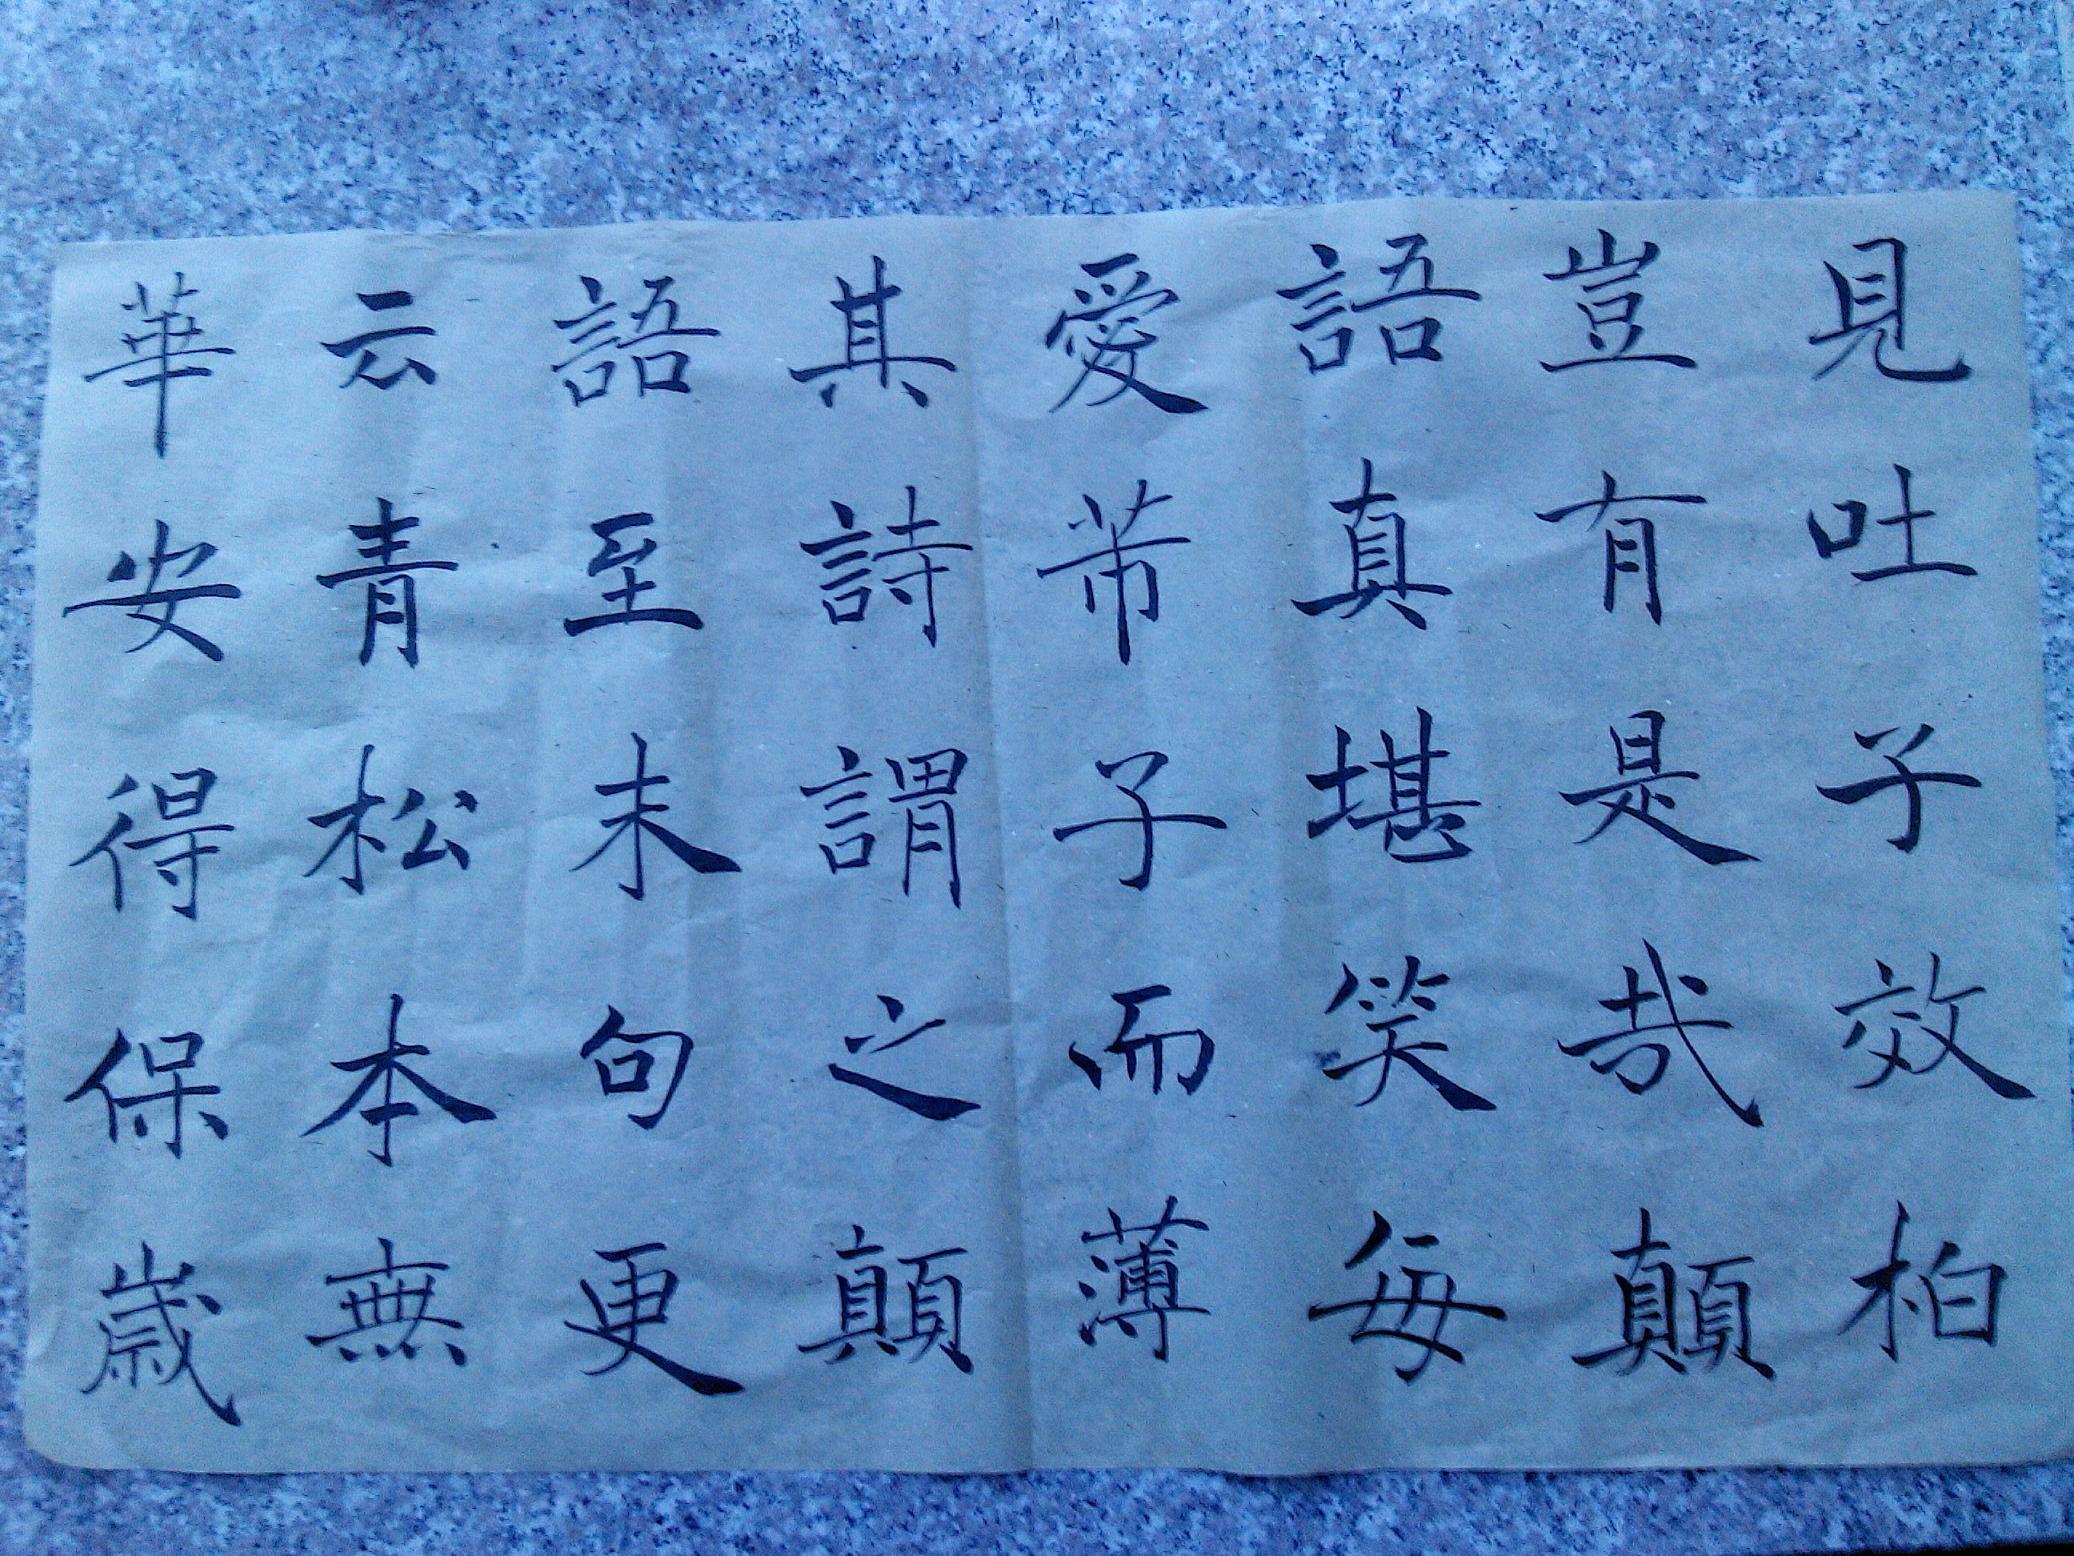 見吐子效柏
豈有是哉顛
語真堪笑每
愛芾子而薄
其詩謂之顛
語至末句更
云青松本無
華安得保歲